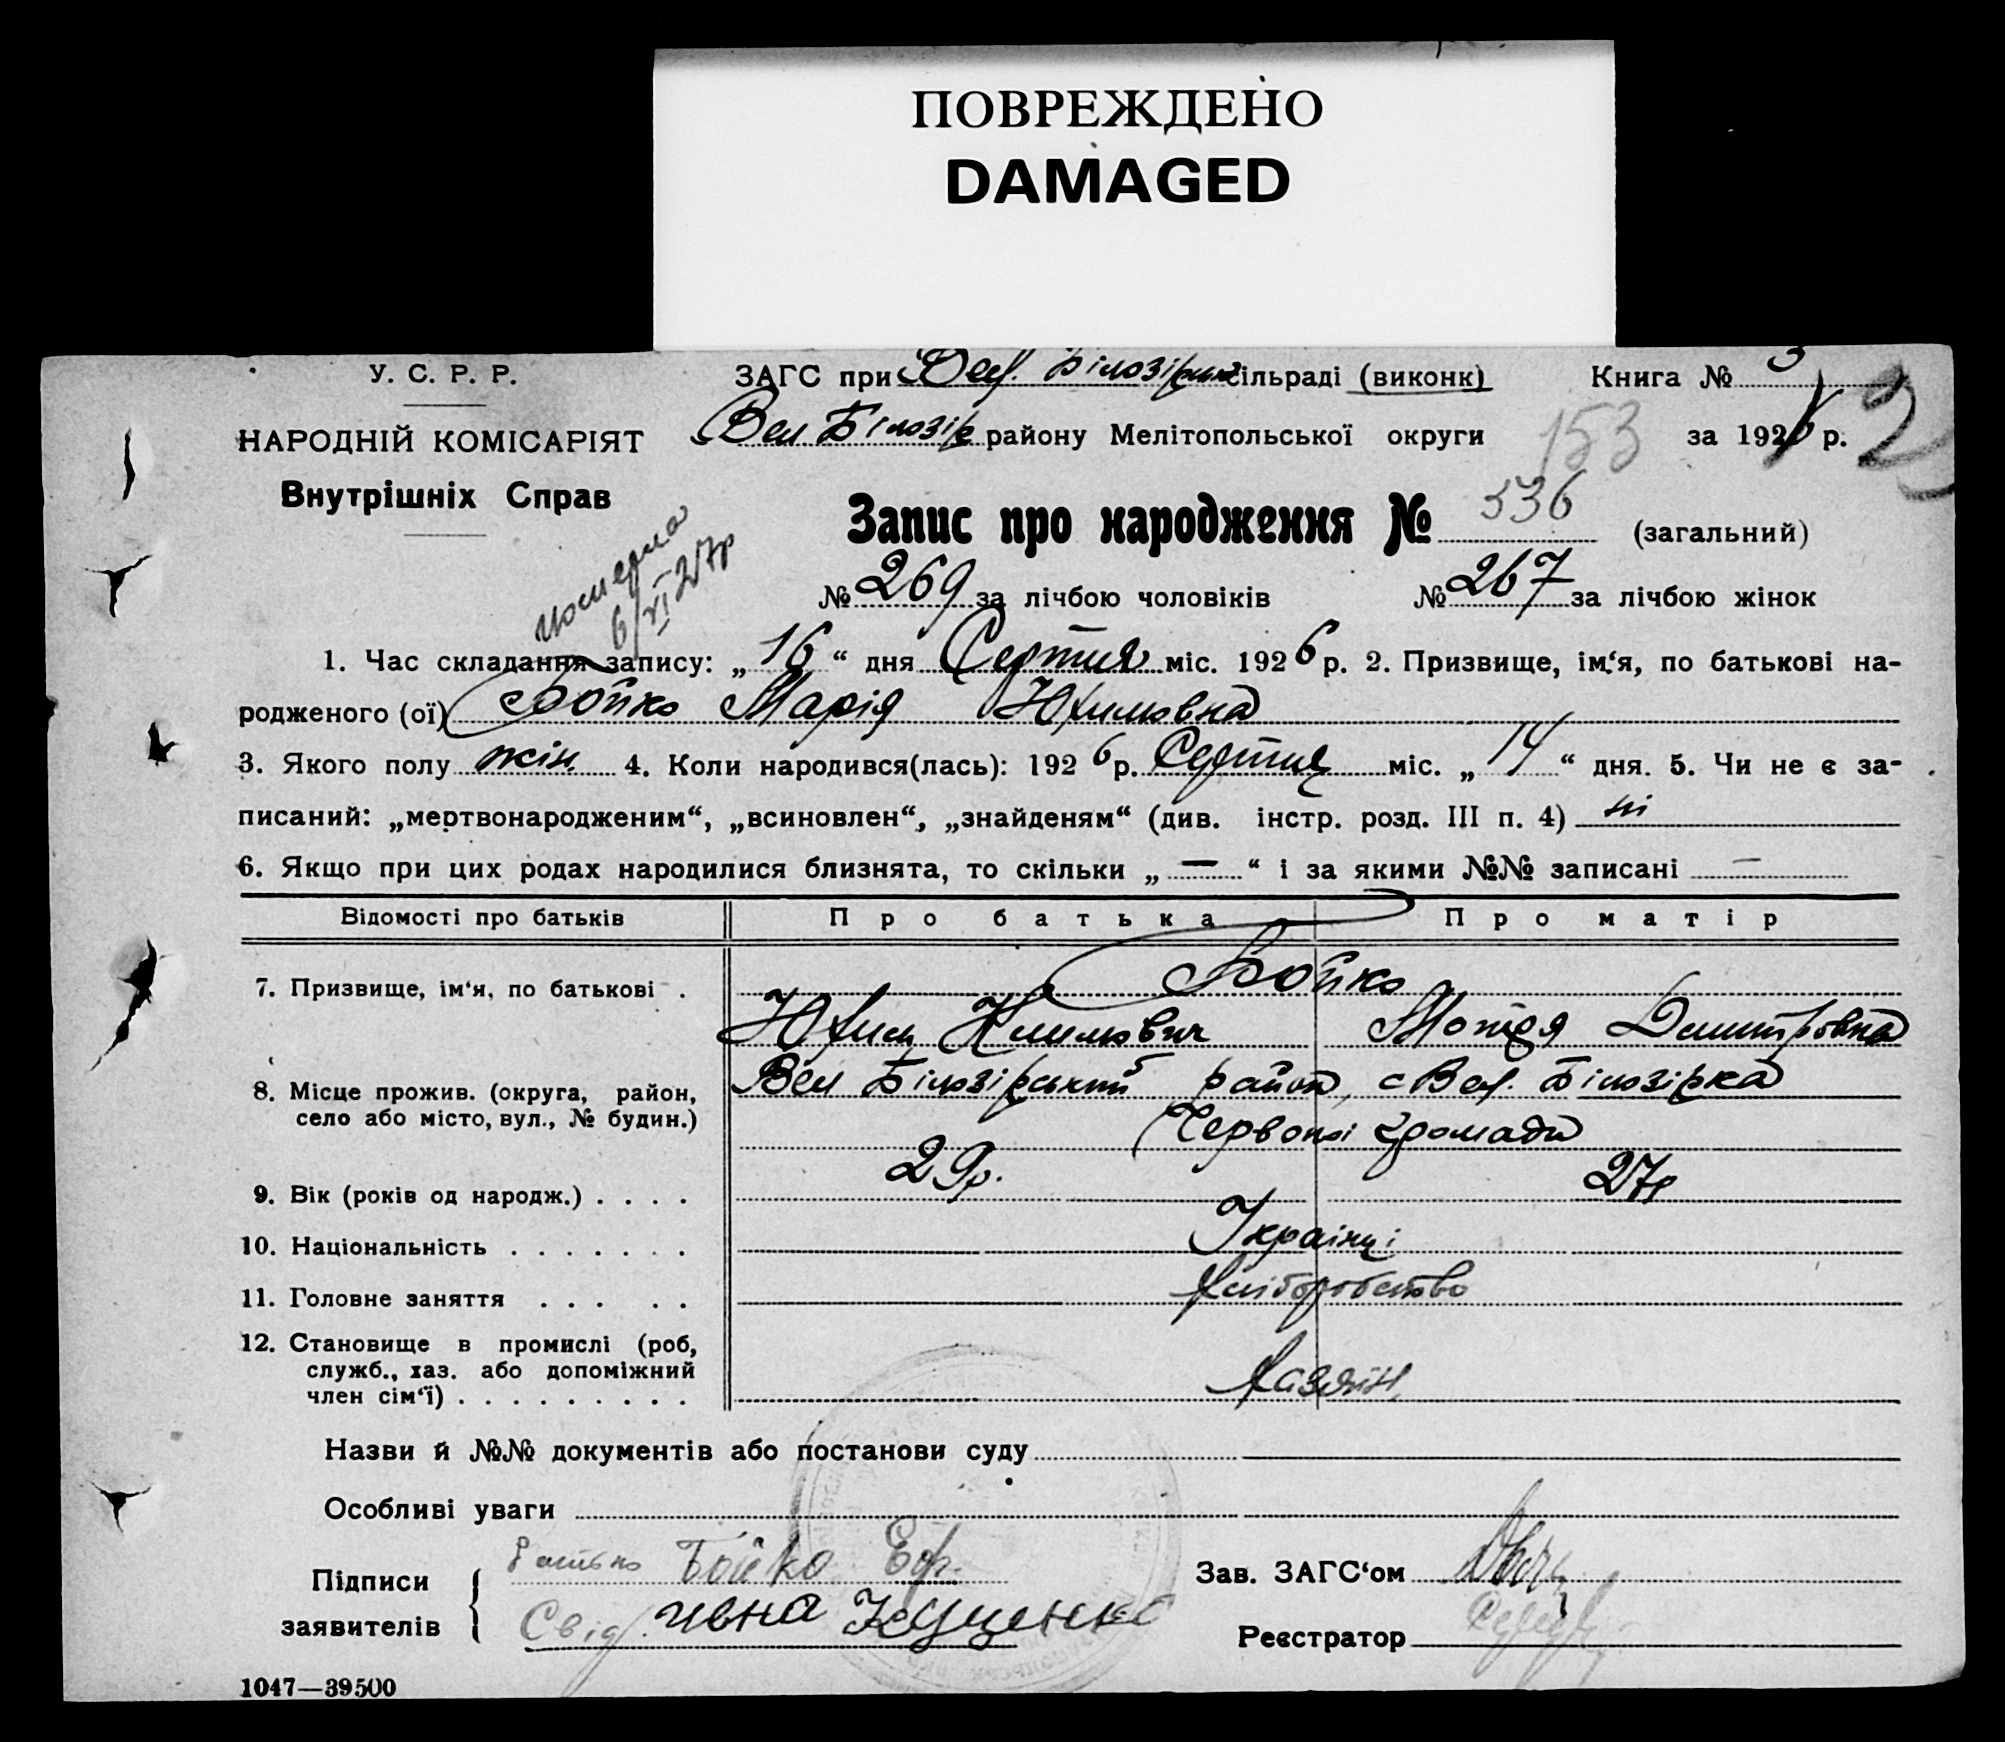 ПОВРЕЖДЕНО
DAMAGED
У. С. Р. Р.
ЗАГС при Вел. Білозірськ сільраді (виконк)
Книга № 3
НАРОДНІЙ КОМІСАРІЯТ
Вел Білозір району Мелітопольської округи
153
за 1926 р.
2
Внутрішніх Справ
Запис про народження № 536 (загальний)
померла
6/VI 27р
№ 269 за лічбою чоловіків
№ 267 за лічбою жінок
1. Час складання запису: „16“ дня Серпня міс. 1926 р. 2. Призвище, ім‘я, по батькові на-
родженого (ої) Бойко Марія Юхимовна
3. Якого полу жін. 4. Коли народився(лась): 1926 р. Серпня міс. „14“ дня. 5. Чи не є за-
писаний: „мертвонародженим“, „всиновлен“, „знайденям“ (див. інстр. розд. III п. 4) ні
6. Якщо при цих родах народилися близнята, то скільки „—“ і за якими №№ записані —
Відомості про батьків
Про батька
Про матір
7. Призвище, ім‘я, по батькові .
Бойко
Юхим Климович
Мотря Дмитровна
8. Місце прожив. (округа, район,
село або місто, вул., № будин.)
Вел Білозірський район, с Вел. Білозірка
Червоної громади
9. Вік (років од народж.) . . . .
29р.
27р
10. Національність . . . . . . .
Українці
11. Головне заняття . . . . .
Хліборобство
12. Становище в промислі (роб,
служб., хаз. або допоміжний
член сім‘ї) . . . . . . . . .
Хазяїн
Назви й №№ документів або постанови суду
Особливі уваги
Підписи
заявителів
батько Бойко Еф.
Свід. Куценко
Зав. ЗАГС‘ом
Реєстратор
1047—39500